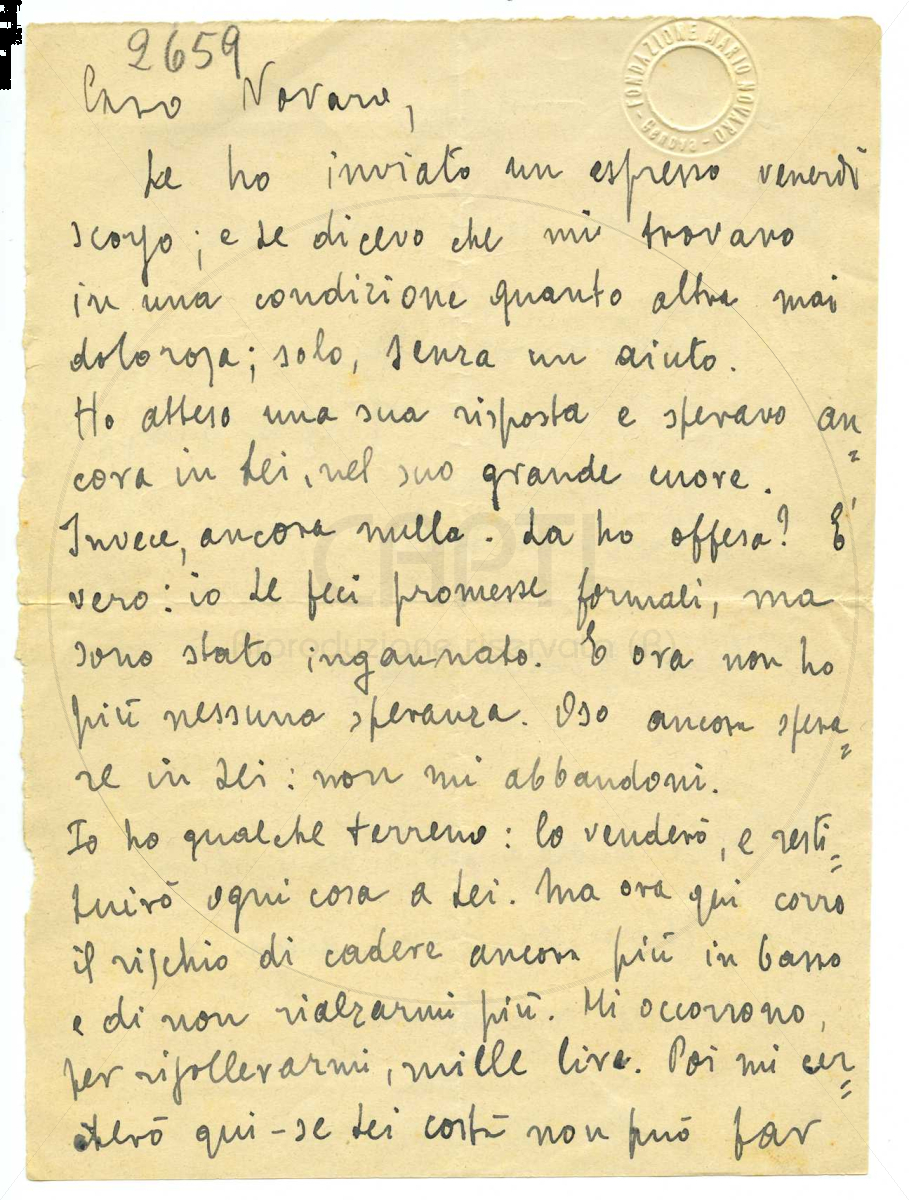 2659
FONDAZIONE MARIO NOVARO - Genova -
Caro Novaro,
Le ho inviato un espresso venerdì
scorso; e Le dicevo che mi trovavo
in una condizione quanto altra mai
dolorosa; solo, senza un aiuto.
Ho atteso una sua risposta e speravo an=
cora in Lei, nel suo grande cuore.
Invece, ancora nulla. La ho offesa? E'
vero: io Le feci promesse formali, ma
sono stato ingannato. E ora non ho
più nessuna speranza. Oso ancora spera=
re in Lei: non mi abbandoni.
Io ho qualche terreno: lo venderò, e resti=
tuirò ogni cosa a Lei. Ma ora qui corro
il rischio di cadere ancora più in basso
e di non rialzarmi più. Mi occorrono,
per risollevarmi, mille lire. Poi mi cer=
cherò qui - se Lei costà non può far
CAPTI
riproduzione riservata (R)